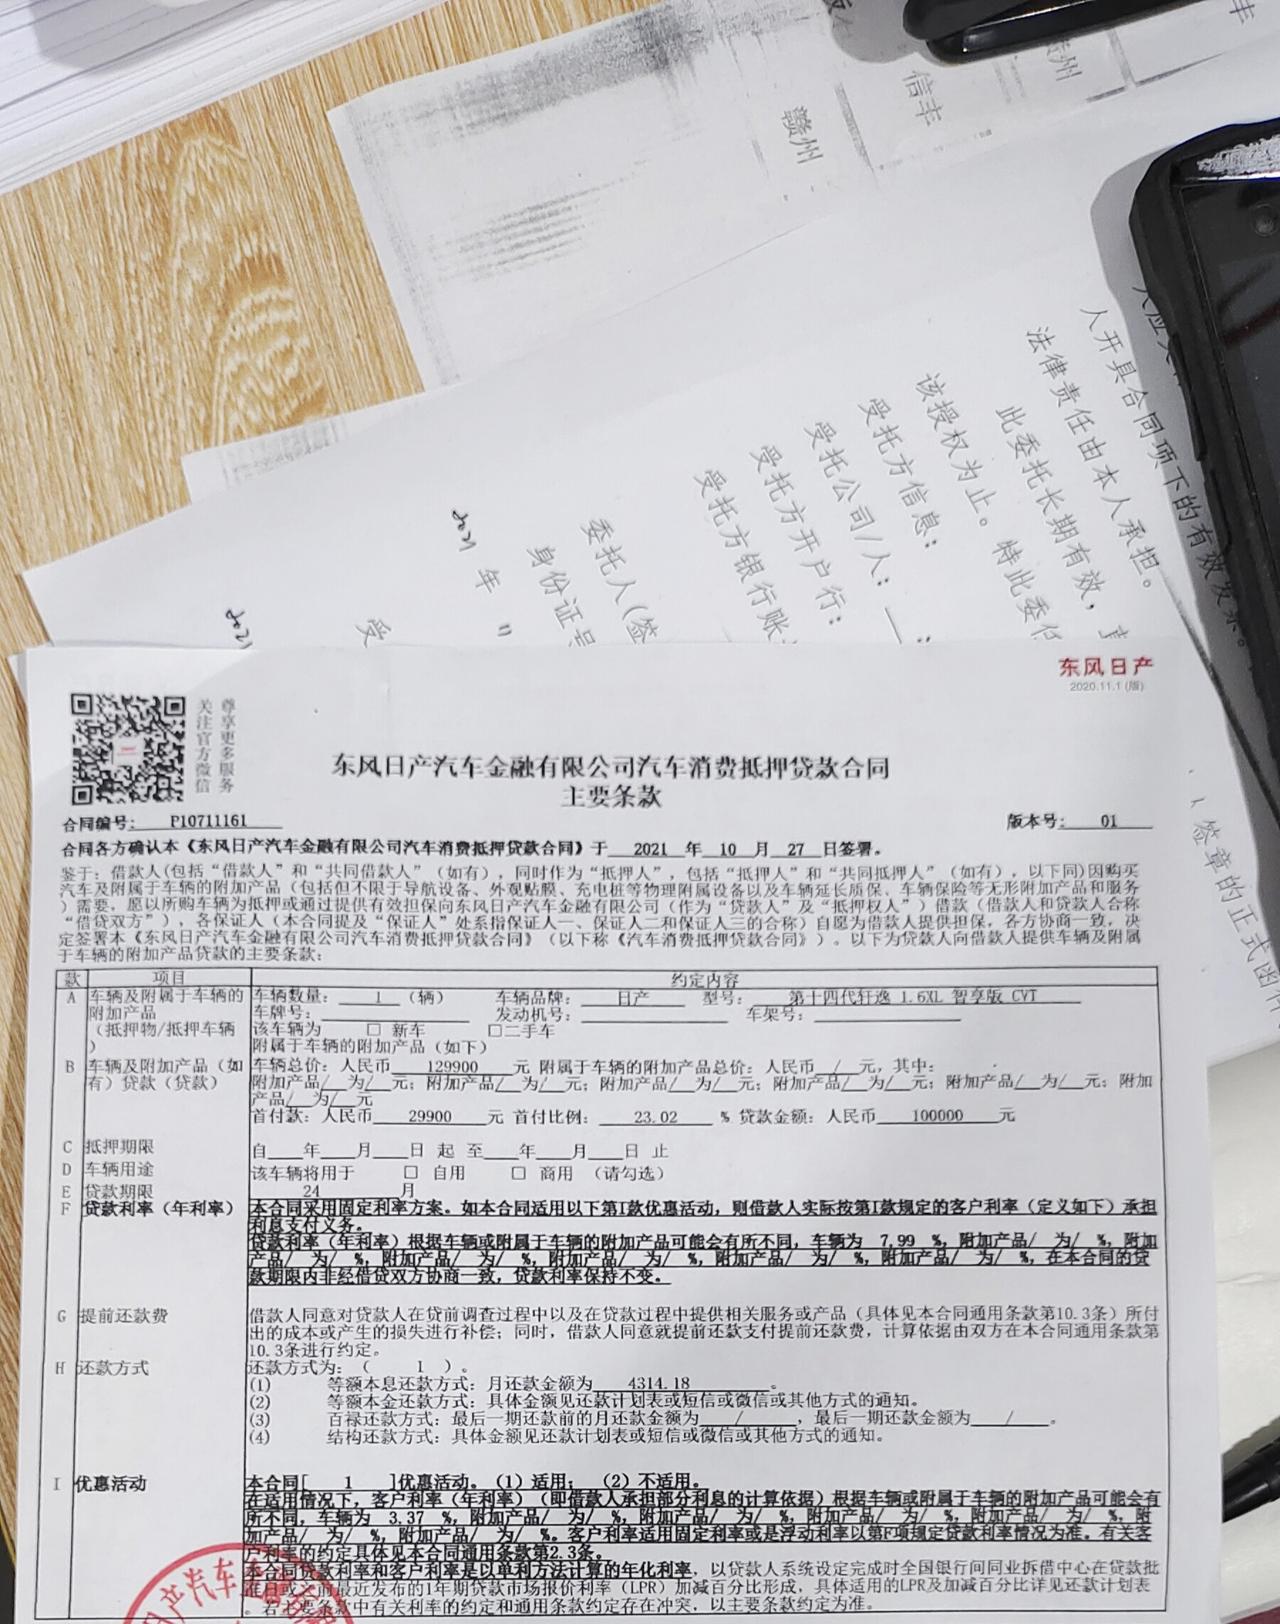 赣州
信丰
人开具合同项下的有效发票。
法律责任由本人承担。
此委托长期有效，
该授权为止。特此委
受托方信息：
受托公司/人：
受托方开户行：
受托方银行账
委托人(签
身份证号
2021 年
受
签章的正式函件
东风日产
2020.11.1 (版)
尊享更多服务
关注官方微信
东风日产汽车金融有限公司汽车消费抵押贷款合同
主要条款
合同编号： P10711161
版本号： 01
合同各方确认本《东风日产汽车金融有限公司汽车消费抵押贷款合同》于 2021 年 10 月 27 日签署。
鉴于：借款人(包括“借款人”和“共同借款人”（如有），同时作为“抵押人”，包括“抵押人”和“共同抵押人”（如有），以下同)因购买
汽车及附属于车辆的附加产品（包括但不限于导航设备、外观贴膜、充电桩等物理附属设备以及车辆延长质保、车辆保险等无形附加产品和服务
）需要，愿以所购车辆为抵押或通过提供有效担保向东风日产汽车金融有限公司（作为“贷款人”及“抵押权人”）借款（借款人和贷款人合称
“借贷双方”），各保证人（本合同提及“保证人”处系指保证人一、保证人二和保证人三的合称）自愿为借款人提供担保，各方协商一致，决
定签署本《东风日产汽车金融有限公司汽车消费抵押贷款合同》（以下称《汽车消费抵押贷款合同》）。以下为贷款人向借款人提供车辆及附属
于车辆的附加产品贷款的主要条款：
款 项目 约定内容
A 车辆及附属于车辆的 车辆数量： 1 （辆） 车辆品牌： 日产 型号： 第十四代轩逸 1.6XL 智享版 CVT
附加产品 车牌号：____ 发动机号：____ 车架号：____
（抵押物/抵押车辆 该车辆为 □ 新车 □二手车
） 附属于车辆的附加产品（如下）
B 车辆及附加产品（如 车辆总价：人民币 129900 元 附属于车辆的附加产品总价：人民币 / 元，其中：
有）贷款（贷款） 附加产品/ 为/ 元；附加产品/ 为/ 元；附加产品/ 为/ 元；附加产品/ 为/ 元；附加产品/ 为/ 元；附加
产品/ 为/ 元
首付款：人民币 29900 元 首付比例： 23.02 % 贷款金额：人民币 100000 元
C 抵押期限 自___年___月___日 起 至___年___月___日 止
D 车辆用途 该车辆将用于 □ 自用 □ 商用 （请勾选）
E 贷款期限 24 月
F 贷款利率（年利率） 本合同采用固定利率方案。如本合同适用以下第I款优惠活动，则借款人实际按第I款规定的客户利率（定义如下）承担
利息支付义务。
贷款利率（年利率）根据车辆或附属于车辆的附加产品可能会有所不同，车辆为 7.99 %，附加产品/ 为/ %，附加
产品/ 为/ %，附加产品/ 为/ %，附加产品/ 为/ %，附加产品/ 为/ %，附加产品/ 为/ %，在本合同的贷
款期限内非经借贷双方协商一致，贷款利率保持不变。
G 提前还款费 借款人同意对贷款人在贷前调查过程中以及在贷款过程中提供相关服务或产品（具体见本合同通用条款第10.3条）所付
出的成本或产生的损失进行补偿；同时，借款人同意就提前还款支付提前还款费，计算依据由双方在本合同通用条款第
10.3条进行约定。
H 还款方式 还款方式为：（ 1 ）。
(1) 等额本息还款方式：月还款金额为 4314.18 。
(2) 等额本金还款方式：具体金额见还款计划表或短信或微信或其他方式的通知。
(3) 百禄还款方式：最后一期还款前的月还款金额为 / ，最后一期还款金额为 / 。
(4) 结构还款方式：具体金额见还款计划表或短信或微信或其他方式的通知。
I 优惠活动 本合同[ 1 ]优惠活动。（1）适用； （2）不适用。
在适用情况下，客户利率（年利率）（即借款人承担部分利息的计算依据）根据车辆或附属于车辆的附加产品可能会有
所不同，车辆为 3.37 %，附加产品/ 为/ %，附加产品/ 为/ %，附加产品/ 为/ %，附加产品/ 为/ %，附
加产品/ 为/ %，附加产品/ 为/ %。客户利率适用固定利率或是浮动利率以第F项规定贷款利率情况为准。有关客
户利率的约定具体见本合同通用条款第2.3条。
本合同贷款利率和客户利率是以单利方法计算的年化利率，以贷款人系统设定完成时全国银行间同业拆借中心在贷款批
最近发布的1年期贷款市场报价利率（LPR）加减百分比形成，具体适用的LPR及加减百分比详见还款计划表
。若主要条款中有关利率的约定和通用条款约定存在冲突，以主要条款约定为准。
产汽车